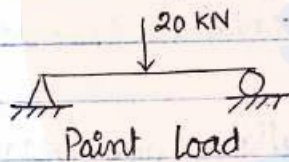 20 KN
Paint Load